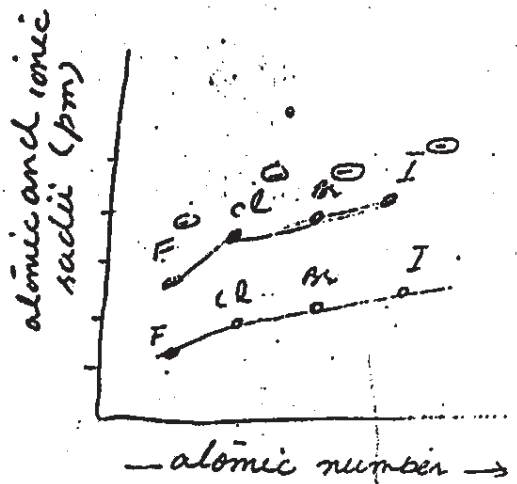 atomic and ionic
radii (pm)
F⊖ Cl⊖ Br⊖ I⊖
F Cl Br I
— atomic number →